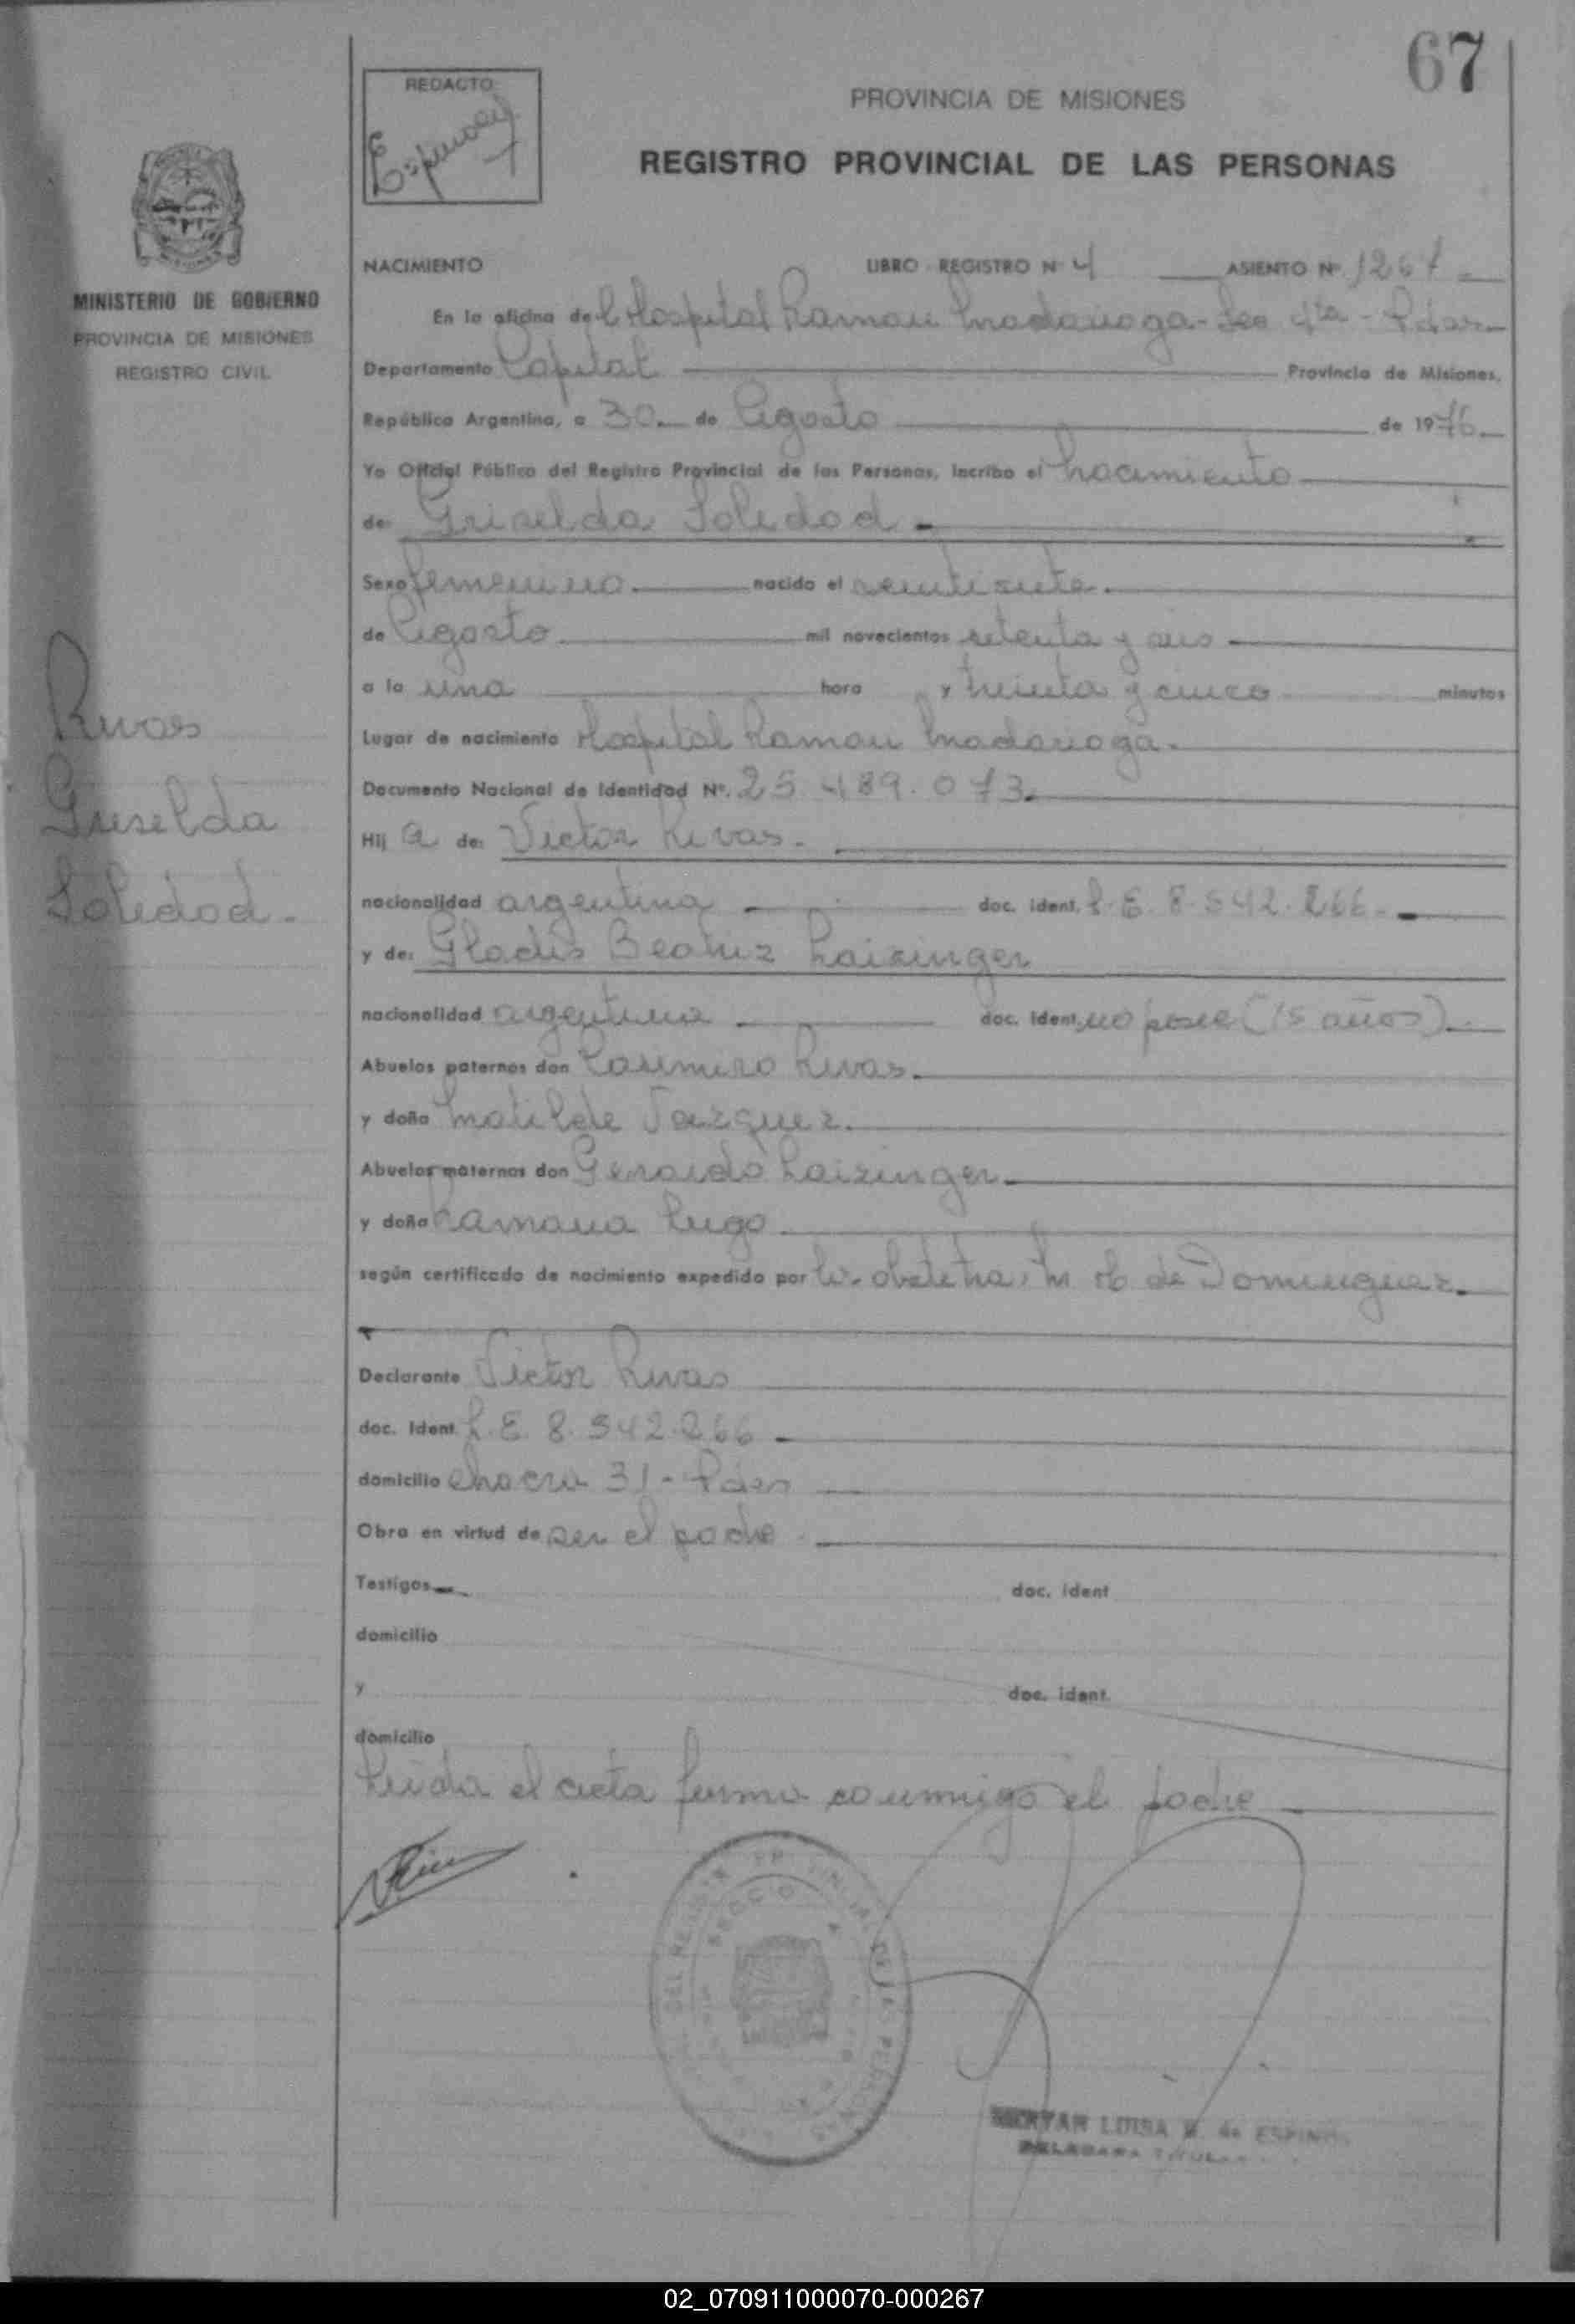 67
REDACTO
PROVINCIA DE MISIONES
REGISTRO PROVINCIAL DE LAS PERSONAS
MINISTERIO DE GOBIERNO
PROVINCIA DE MISIONES
REGISTRO CIVIL
Rivas
Griselda
Soledad.
NACIMIENTO LIBRO - REGISTRO Nº 4 ASIENTO Nº 1267
En la oficina del Hospital Ramon Madariaga - Sec 4ta - Pdas
Departamento Capital Provincia de Misiones,
República Argentina, a 30 de Agosto de 1976
Yo Oficial Público del Registro Provincial de las Personas, incribo el nacimiento
de: Griselda Soledad
Sexo femenino nacido el veintisiete
de Agosto mil novecientos setenta y seis
a la una hora y treinta y cinco minutos
Lugar de nacimiento Hospital Ramon Madariaga.
Documento Nacional de Identidad Nº. 25.489.073
Hij a de: Victor Rivas.
nacionalidad argentina doc. ident. L.E. 8.542.266
y de: Gladis Beatriz Raizinger
nacionalidad argentina doc. ident. no posee (15 años)
Abuelos paternos don Casimiro Rivas
y doña Matilde Vazquez.
Abuelos maternos don Gerardo Raizinger
y doña Ramona Lugo
según certificado de nacimiento expedido por obstetra, de Dominguez.
Declarante Victor Rivas
doc. ident. L.E. 8.542.266
domicilio chacra 31 - Pdas
Obra en virtud de ser el padre
Testigos doc. ident
domicilio
y doc. ident.
domicilio
Leida el acta firma conmigo el padre
02_070911000070-000267